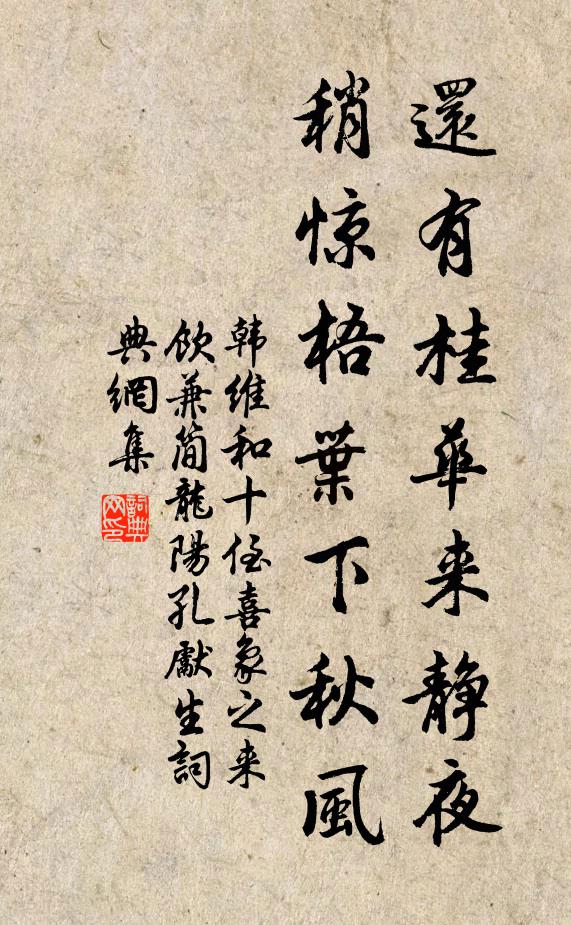 還有桂華来静夜
稍惊梧葉下秋風
韩维和十侄喜象之来
飲兼简龍陽孔獻生詞
典網集
詞典
网印